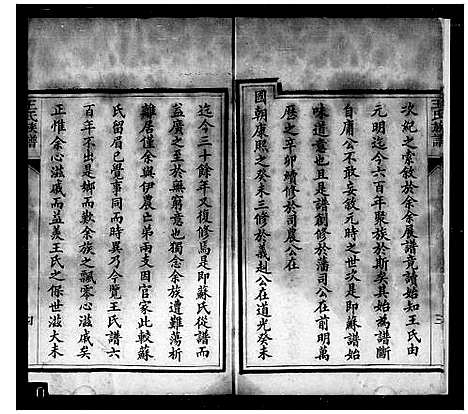 次紀之索敘於余余展譜竟讀始知王氏由
元明迄今六百年聚族於斯矣其始為譜斷
自庸公不敢妄敘元時之世次是即蘇譜始
味道意也且是譜創修於藩司公在前明萬
曆之辛卯續修於司農公在
國朝康熙之癸未三修於義尌公在道光癸未
迄今三十餘年又復修焉是即蘇氏從譜而
益廣之至於無窮意也獨念余族遭難蕩析
離居僅余與伊農亡弟兩支因官家此較蘇
氏留眉已覺事同而時異乃今覽王氏譜六
百年不出是鄉而歎余族之飄零心滋戚矣
正惟余心滋戚而益羨王氏之保世滋大未
王氏族譜